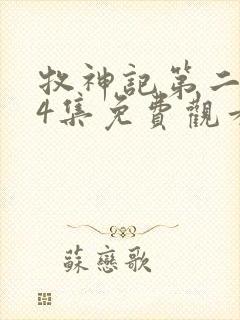 牧神記第二
4集免費觀
蘇戀歌